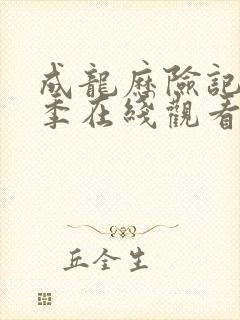 成龍歷險記
季在綫觀看
丘全生